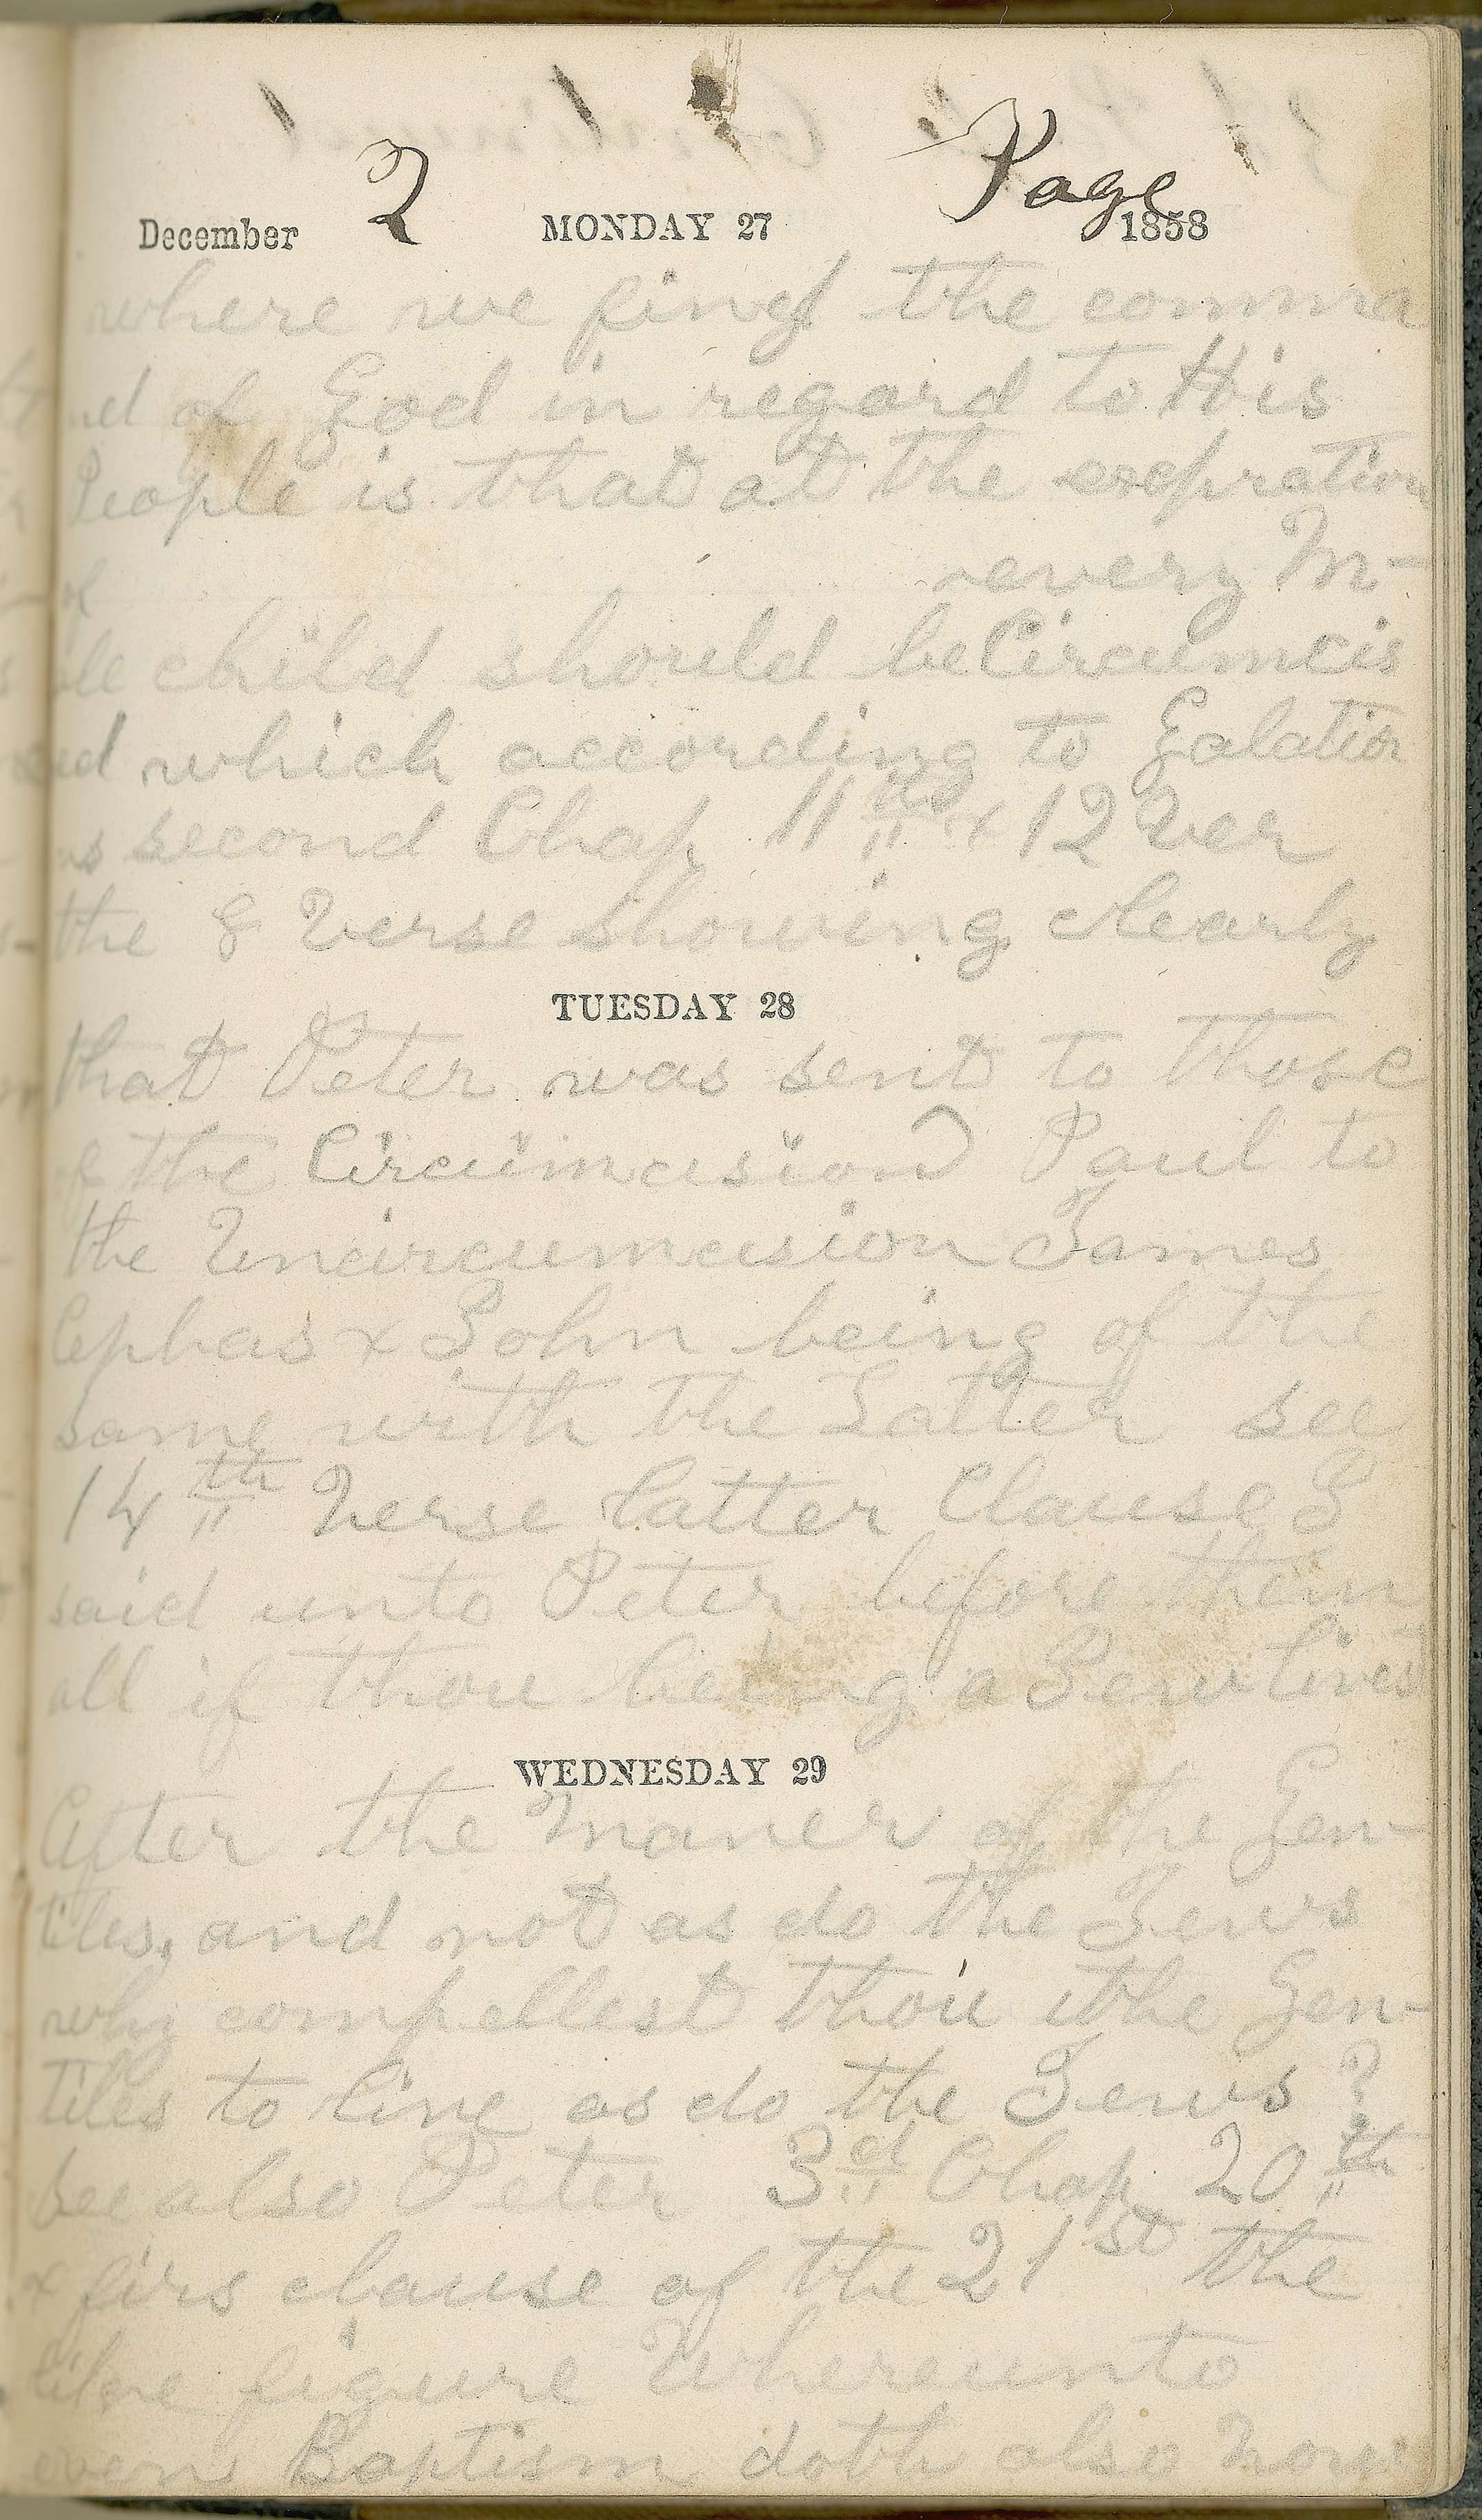 2 Page
December MONDAY 27 1858
where we find the comma
nd of God in regard to His
People is that at the expration
of every M-
ale child should be Circumcis
ed which according to Galatior
ns second Chap 11th & 12 ver
the 8 Verse showing clearly
TUESDAY 28
that Peter was sent to those
of the Circumcision Paul to
the Uncircumcision James
Cephas & John being of the
same with the Latter see
14th Verse latter Clause I
said unto Peter before them
all if thou being a Jew livest
WEDNESDAY 29
After the maner of the Gen-
tiles, and not as do the Jews
why compellest thou the Gen-
tiles to live as do the Jews ?
see also Peter 3d Chap 20th
& firs clause of the 21st the
like figure Whereunto
even Baptism doth also now